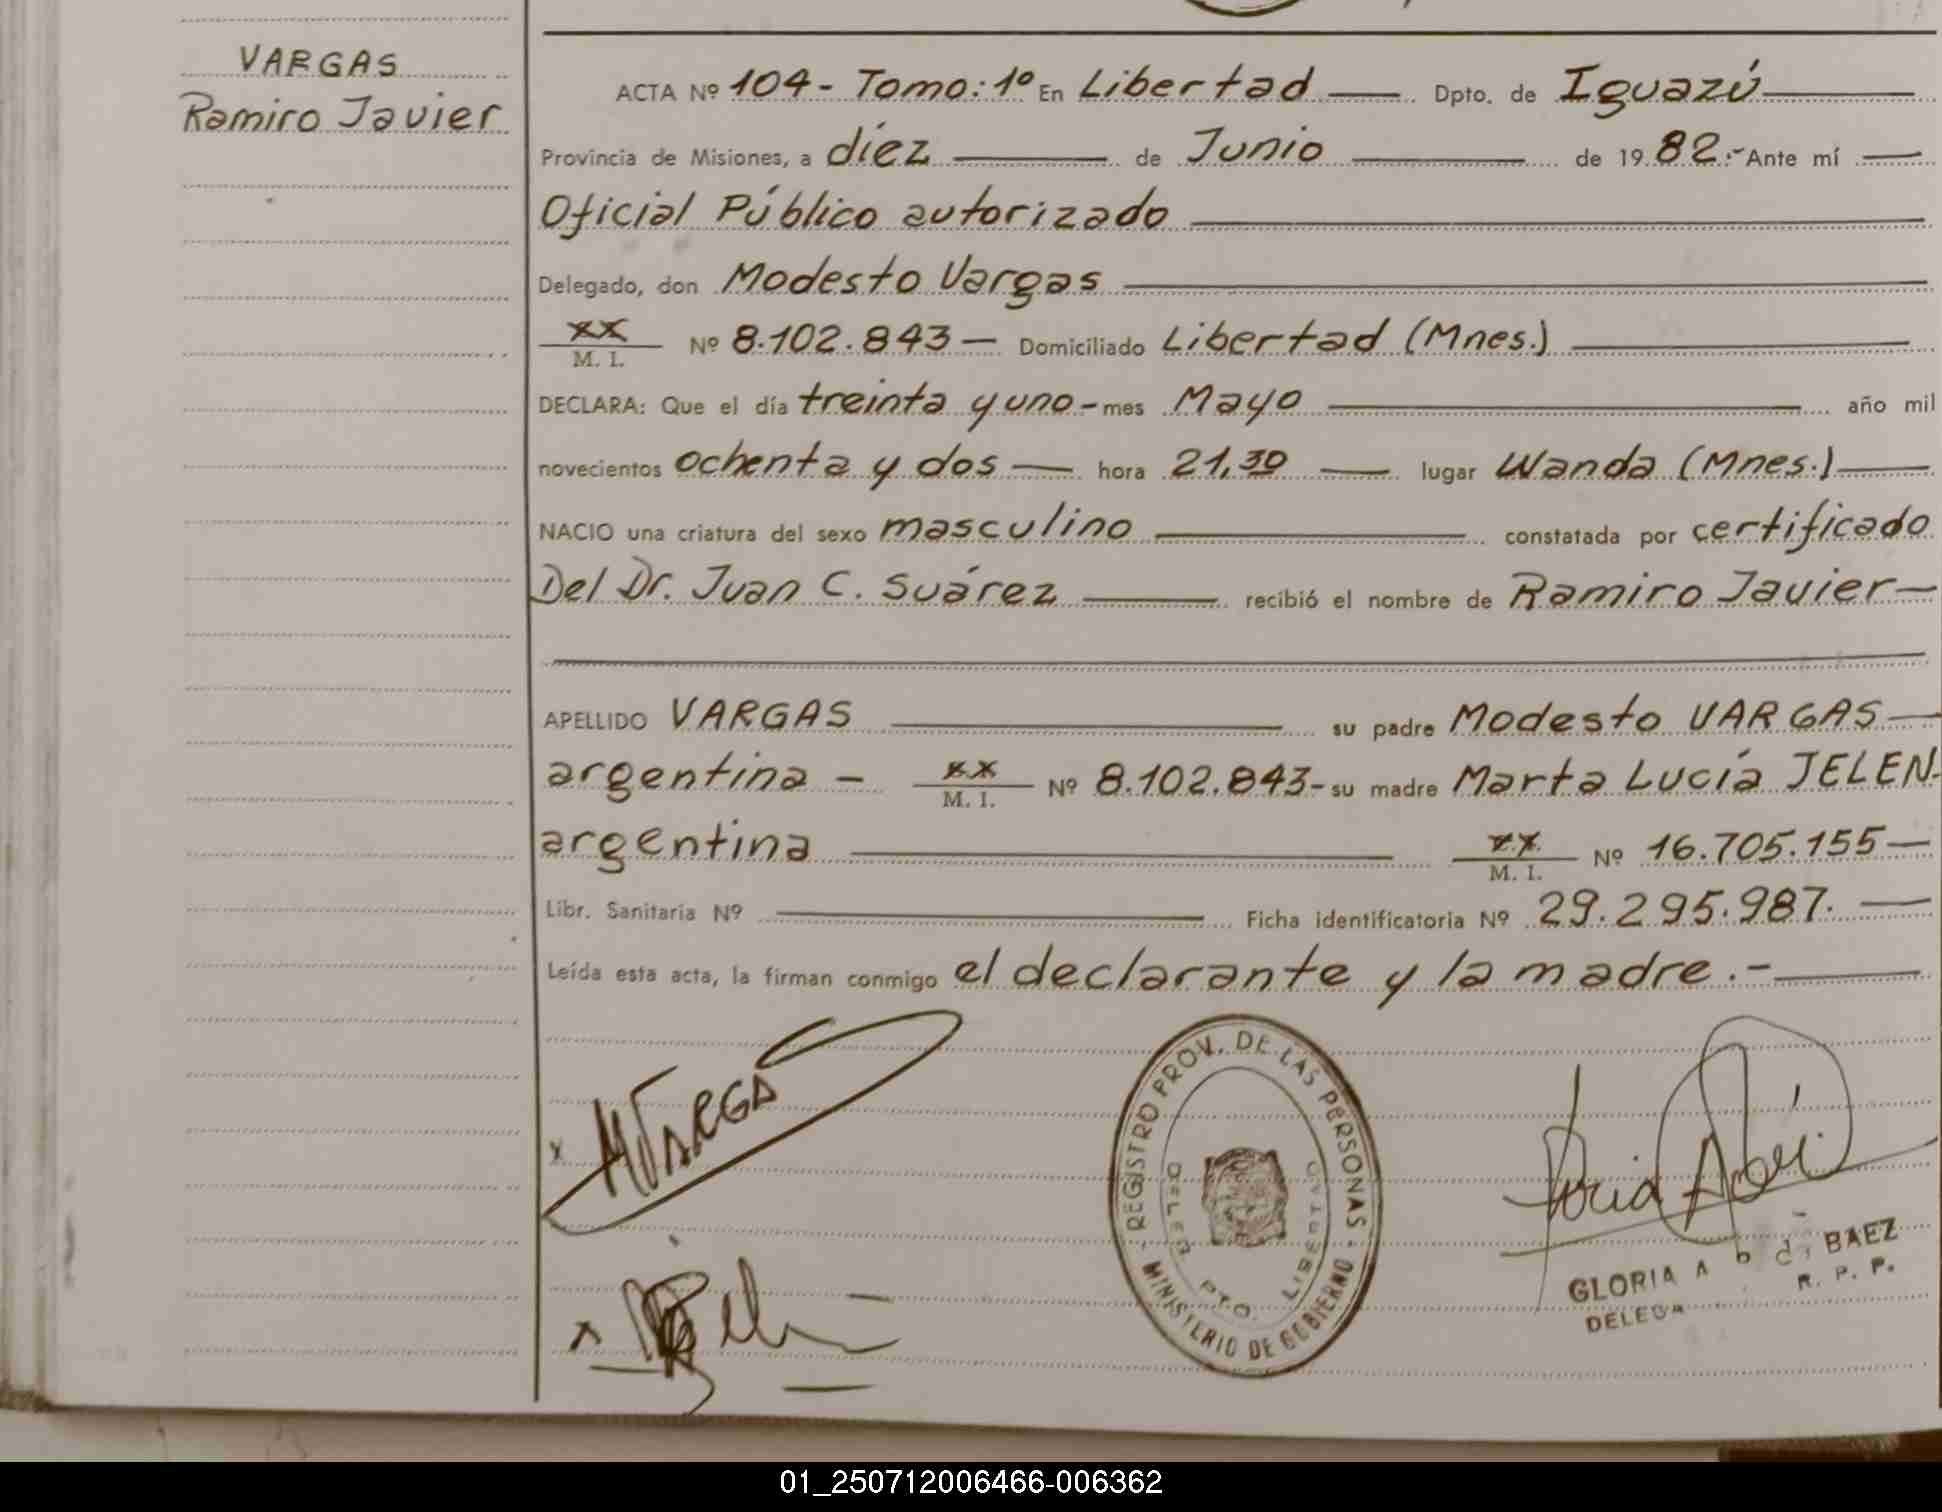 VARGAS
Ramiro Javier
ACTA Nº 104 - Tomo: 1º En Libertad — Dpto. de Iguazú —
Provincia de Misiones, a díez — de Junio — de 19 82.- Ante mí —
Oficial Público autorizado —
Delegado, don Modesto Vargas —
xx
M. I. Nº 8.102.843 — Domiciliado Libertad (Mnes.) —
DECLARA: Que el día treinta y uno - mes Mayo — año mil
novecientos ochenta y dos — hora 21,30 — lugar Wanda (Mnes.) —
NACIO una criatura del sexo masculino — constatada por certificado
Del Dr. Juan C. Suárez — recibió el nombre de Ramiro Javier —
APELLIDO VARGAS — su padre Modesto VARGAS —
argentina - xx M. I. Nº 8.102.843 - su madre Marta Lucía JELEN -
argentina — xx M. I. Nº 16.705.155 —
Libr. Sanitaria Nº — Ficha identificatoria Nº 29.295.987. —
Leída esta acta, la firman conmigo el declarante y la madre.- —
x MVARGAS
x
REGISTRO PROV. DE LAS PERSONAS
DELEG. PTO. LIBERTAD
MINISTERIO DE GOBIERNO
GLORIA A BAEZ
R. P. P.
01_250712006466-006362